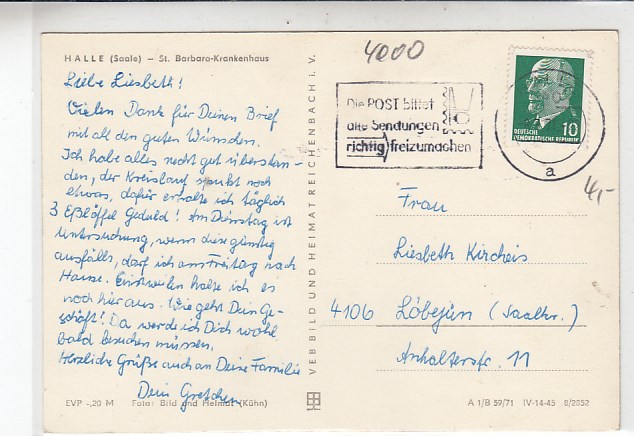 4000
HALLE (Saale) – St. Barbara-Krankenhaus
Liebe Liesbeth!
Vielen Dank für Deinen Brief
mit all den guten Wünschen.
Ich habe alles recht gut überstan-
den, der Kreislauf spukt noch
etwas, dafür erhalte ich täglich
3 Eßlöffel Geduld! Am Dienstag ist
Untersuchung, wenn diese günstig
ausfällt, darf ich am Freitag nach
Hause. Einstweilen halte ich es
noch hier aus. Wie geht Dein Ge-
schäft! Da werde ich Dich wohl
bald besuchen müssen.
Herzliche Grüße auch an Deine Familie
Dein Gretchen
EVP -,20 M Foto: Bild und Heimat (Kühn)
VEB BILD UND HEIMAT REICHENBACH i. V.
Die POST bittet
alle Sendungen
richtig freizumachen
a
DEUTSCHE
DEMOKRATISCHE REPUBLIK
10
4,-
Frau
Liesbeth Kircheis
4106 Löbejün (Saalkr.)
Anhalterstr. 11
A 1/B 59/71 IV-14-45 8/2852